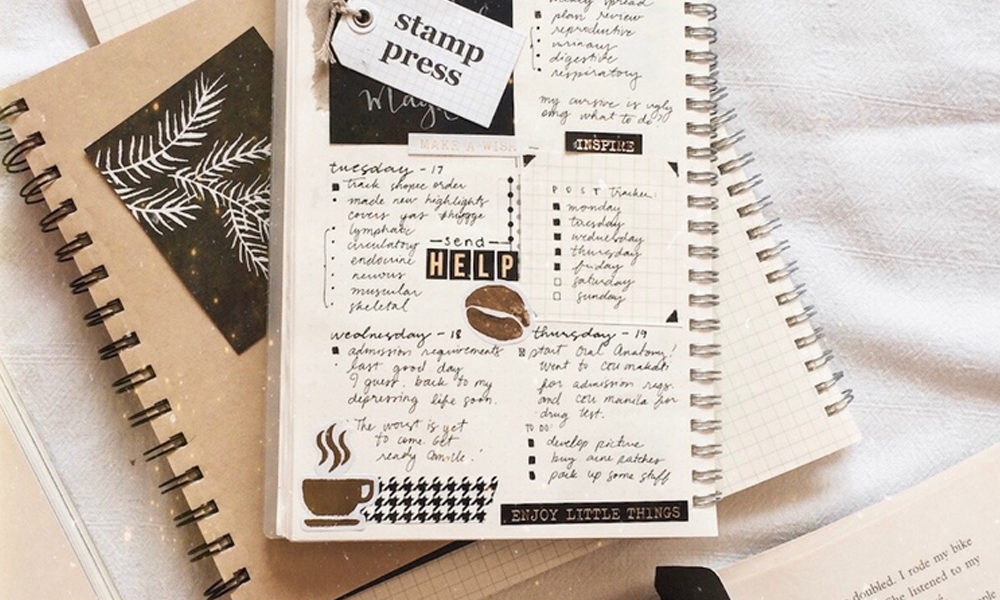 stamp
press
MAKE A WISH
weekly spread
plan review
reproductive
urinary
digestive
respiratory
my cursive is ugly
omg what to do?
INSPIRE
tuesday - 17
track shopee order
made new highlights
covers yas
lymphatic
circulatory
endocrine
nervous
muscular
skeletal
send
HELP
POST tracker:
monday
tuesday
wednesday
thursday
friday
saturday
sunday
wednesday - 18
admission requirements
last good day
I guess. back to my
depressing life soon.
"The worst is yet
to come. Get
ready
thursday - 19
start Oral Anatomy!
Went to CEU makati
for admission reqs.
and CEU manila for
drug test.
TO DO:
develop picture
buy acne patches
pack up some stuff
ENJOY LITTLE THINGS
doubled. I rode my bike
She listened to my